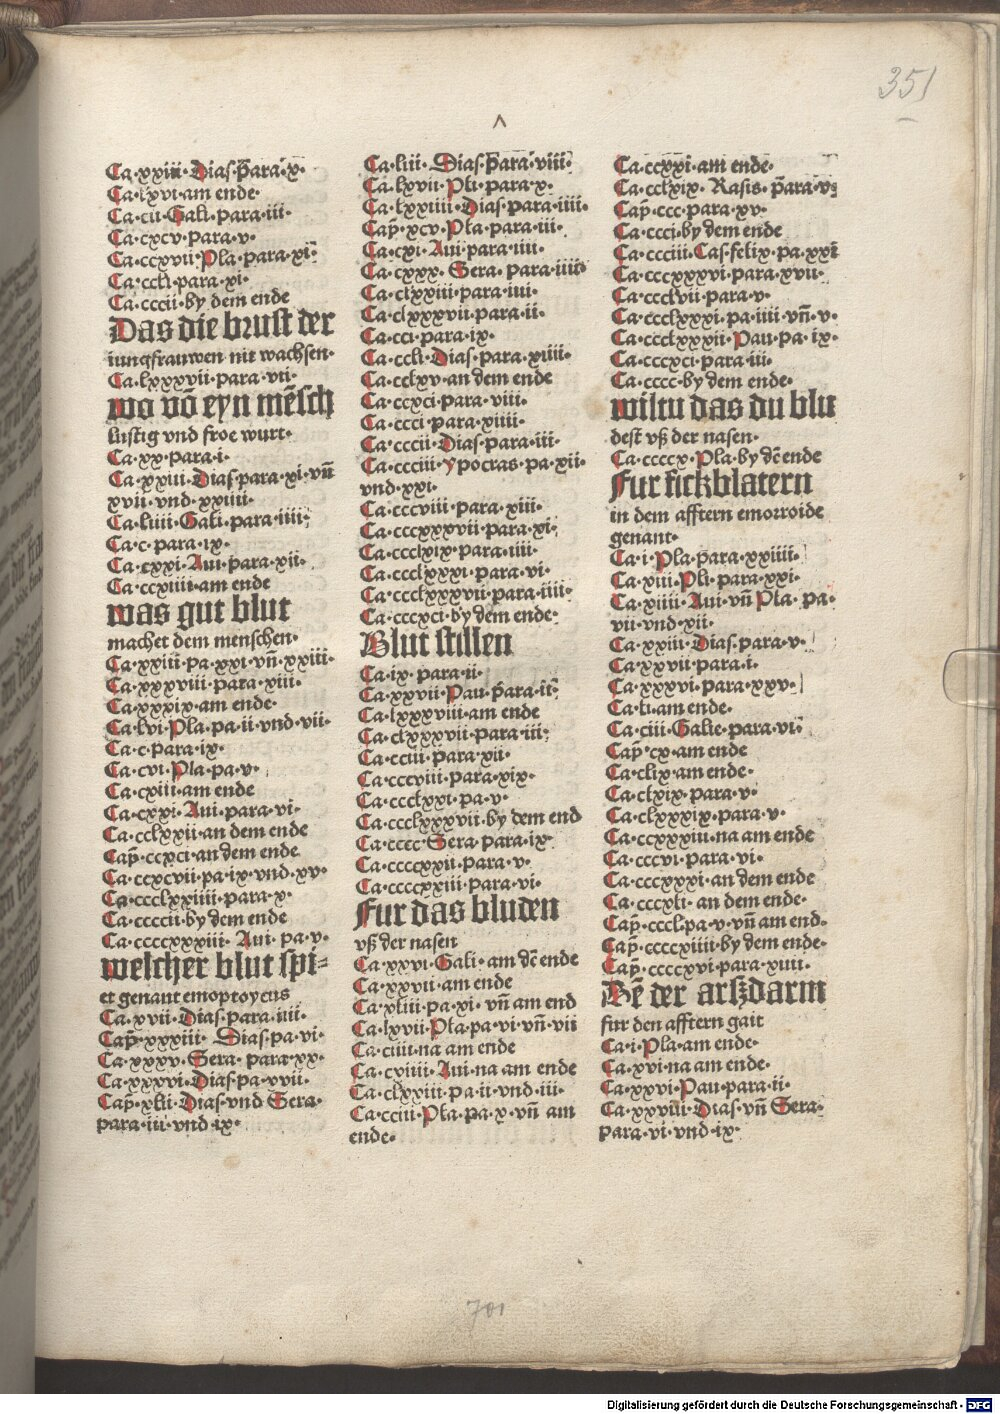 351
Ca·xxiii·Dias·para·x·
Ca·lxvi·am ende·
Ca·cii·Gali·para·iii·
Ca·cxcv·para·v·
Ca·ccxvii·Pla·para·xi·
Ca·ccli·para·xi·
Ca·cccii·by dem ende
Das die brust der
iungfrauwen nit wachsen·
Ca·lxxxvii·para·vii·
wo vō eyn mēsch
lustig vnd froe wurt·
Ca·xx·para·i·
Ca·xxiii·Dias·para·xi·vn̄
xvii·vnd·xxiiii·
Ca·liiii·Gali·para·iiii·
Ca·c·para·ix·
Ca·cxxi·Aui·para·xii·
Ca·ccxiiii·am ende
was gut blut
machet dem menschen·
Ca·xxiii·pa·xxi·vn̄·xxiii·
Ca·xxxviii·para·xiii·
Ca·xxxix·am ende·
Ca·lvi·Pla·pa·ii·vnd·vii·
Ca·c·para·ix·
Ca·cvi·Pla·pa·v·
Ca·cxiii·am ende
Ca·cxxi·Aui·para·vi·
Ca·cclxxii·an dem ende
Cap̄·ccxci·an dem ende
Ca·ccxcvii·pa·ix·vnd·xv·
Ca·ccclxxiiii·para·x·
Ca·ccccii·by dem ende
Ca·ccccxxxiii·Aui·pa·v·
welcher blut spi-
et genant emoptoycus
Ca·xvii·Dias·para·iiii·
Cap̄·xxxiii· Dias·pa·vi·
Ca·xxxv·Sera· para·xx·
Ca·xxxvi·Dias·pa·vvii·
Cap̄·xlii·Dias·vnd Sera·
para·iii·vnd·ix·
Ca·liii·Dias·para·viii·
Ca·lxvii·Pli·para·x·
Ca·lxxiiii·Dias·para·iiii·
Cap̄·xcv·Pla·para·iii·
Ca·cxi·Aui·para·iiii·
Ca·cxxx·Sera·para·iiii·
Ca·clxxiii·para·iui·
Ca·clxxxvii·para·ii·
Ca·cci·para·ix·
Ca·ccli·Dias·para·xiiii·
Ca·cclxv·an dem ende
Ca·ccxci·para·viii·
Ca·ccci·para·xiiii·
Ca·cccii·Dias·para·iii·
Ca·ccciii·ypocras·pa·xii·
vnd·xxi·
Ca·cccviii·para·xiii·
Ca·cccxxxvii·para·xi·
Ca·ccclxix·para·iiii·
Ca·ccclxxxi·para·vi·
Ca·ccclxxxvii·para·iiii·
Ca·cccxci·by dem ende·
Blut stillen
Ca·ix·para·ii·
Ca·xxvii·Pau·para·ii·
Ca·lxxxviii·am ende
Ca·clxxxvii·para·iii·
Ca·cciii·para·xii·
Ca·cccviii·para·xix·
Ca·ccclxxi·pa·v·
Ca·ccclxxxvii·by dem end
Ca·cccc·Sera·para·ix·
Ca·ccccxxii·para·v·
Ca·ccccxxiii·para·vi·
Fur das bluden
vß der nasen
Ca·xxvi·Gali·am dē ende
Ca·xxvii·am ende
Ca·xliii·pa·xi·vn̄ am end
Ca·lxvii·Pla·pa·vi·vn̄·vii
Ca·ciiii·na am ende
Ca·cviiii·Aui·na am ende
Ca·clxxiii·pa·ii·vnd·iii·
Ca·cciii·Pla·pa·x·vn̄ am
ende·
Ca·ccxxi·am ende·
Ca·cclxix·Rasis·para·v·
Cap̄·ccc·para·xv·
Ca·ccci·by dem ende
Ca·ccciii·Cas·felix·pa·xxi
Ca·cccxxxvi·para·xvii·
Ca·ccclvii·para·v·
Ca·ccclxxxi·pa·iiii·vn̄·v·
Ca·ccclxxxii·Pau·pa·ix·
Ca·cccxci·para·iii·
Ca·cccc·by dem ende·
wiltu das du blu
dest vß der nasen·
Ca·ccccx·Pla·by dē ende
Fur fickblatern
in dem afftern emorroide
genant·
Ca·i·Pla·para·xxiiii·
Ca·xiii·Pli·para·xxi·
Ca·xiiii·Aui·vn̄ Pla·pa·
vii·vnd·xii·
Ca·xxiii·Dias·para·v·
Ca·xxvii·para·i·
Ca·xxxvi·para·xxv·
Ca·li·am ende·
Ca·ciii·Galie·para·vi·
Cap̄·cx·am ende
Ca·clix·am ende·
Ca·clxix·para·v·
Ca·clxxxix·para·v·
Ca·ccxxxiii·na am ende
Ca·cccvi·para·vi·
Ca·cccxxxi·an dem ende
Ca·cccxli·an dem ende·
Cap̄·cccl·pa·v·vn̄ am end·
Cap̄·ccccxiiii·by dem ende·
Cap̄·ccccxvi·para·xiiii·
Bē der arßdarm
fur den afftern gait
Ca·i·Pla·am ende·
Ca·xvi·na am ende·
Ca·xxvi·Pau·para·ii·
Ca·xxviii·Dias·vn̄ Sera·
para·vi·vnd·ix·
701
Digitalisierung gefördert durch die Deutsche Forschungsgemeinschaft - DFG